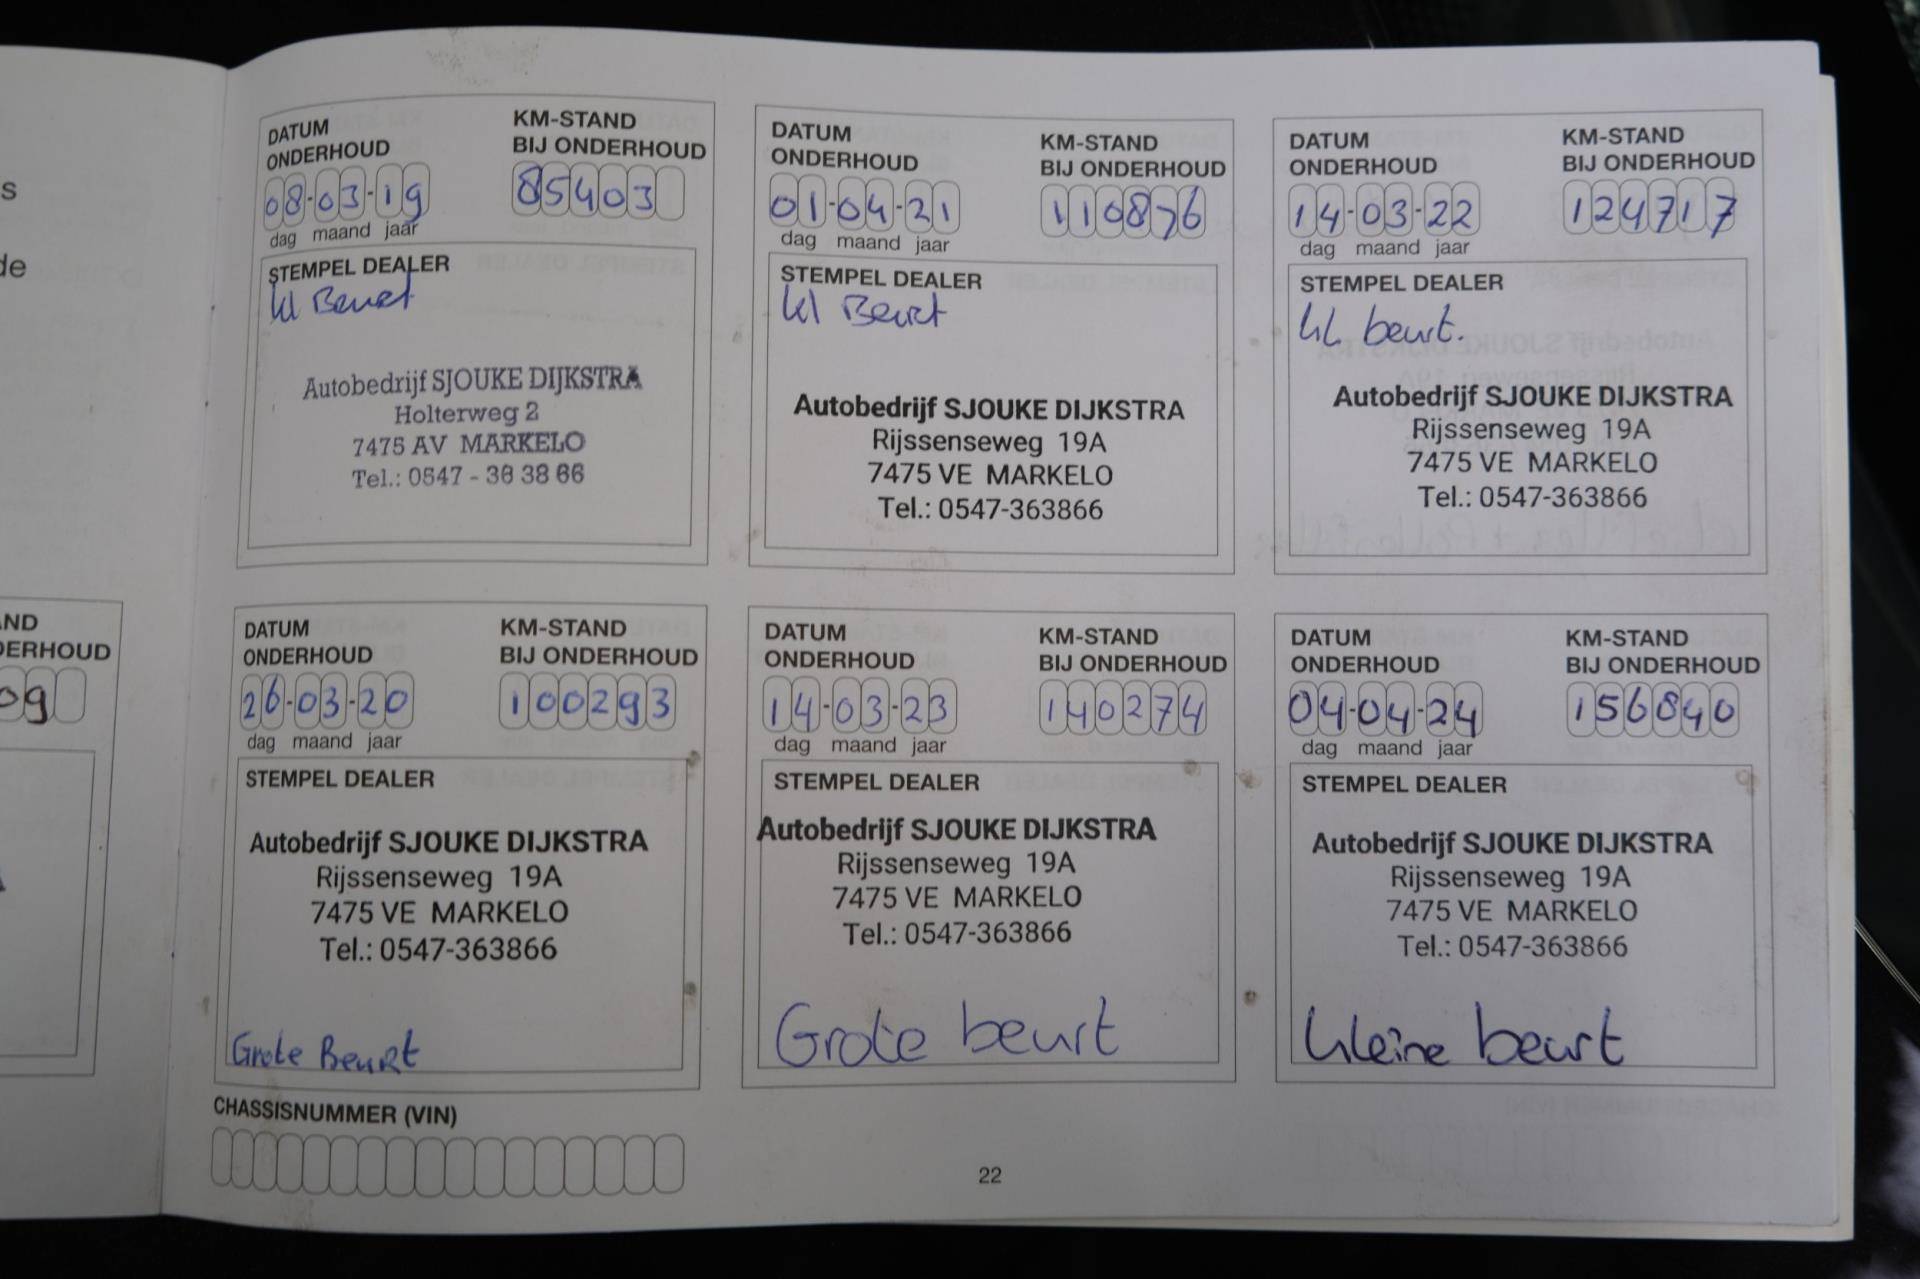 s
de
ND
DERHOUD
09
DATUM
ONDERHOUD
KM-STAND
BIJ ONDERHOUD
08-03-19
85403
dag maand jaar
STEMPEL DEALER
kl Beurt
Autobedrijf SJOUKE DIJKSTRA
Holterweg 2
7475 AV MARKELO
Tel.: 0547 - 36 38 66
DATUM
ONDERHOUD
KM-STAND
BIJ ONDERHOUD
01-04-21
110876
dag maand jaar
STEMPEL DEALER
kl Beurt
Autobedrijf SJOUKE DIJKSTRA
Rijssenseweg 19A
7475 VE MARKELO
Tel.: 0547-363866
DATUM
ONDERHOUD
KM-STAND
BIJ ONDERHOUD
14-03-22
124717
dag maand jaar
STEMPEL DEALER
kl. beurt.
Autobedrijf SJOUKE DIJKSTRA
Rijssenseweg 19A
7475 VE MARKELO
Tel.: 0547-363866
DATUM
ONDERHOUD
KM-STAND
BIJ ONDERHOUD
26-03-20
100293
dag maand jaar
STEMPEL DEALER
Autobedrijf SJOUKE DIJKSTRA
Rijssenseweg 19A
7475 VE MARKELO
Tel.: 0547-363866
Grote Beurt
DATUM
ONDERHOUD
KM-STAND
BIJ ONDERHOUD
14-03-23
140274
dag maand jaar
STEMPEL DEALER
Autobedrijf SJOUKE DIJKSTRA
Rijssenseweg 19A
7475 VE MARKELO
Tel.: 0547-363866
Grote beurt
DATUM
ONDERHOUD
KM-STAND
BIJ ONDERHOUD
04-04-24
156840
dag maand jaar
STEMPEL DEALER
Autobedrijf SJOUKE DIJKSTRA
Rijssenseweg 19A
7475 VE MARKELO
Tel.: 0547-363866
kleine beurt
CHASSISNUMMER (VIN)
22